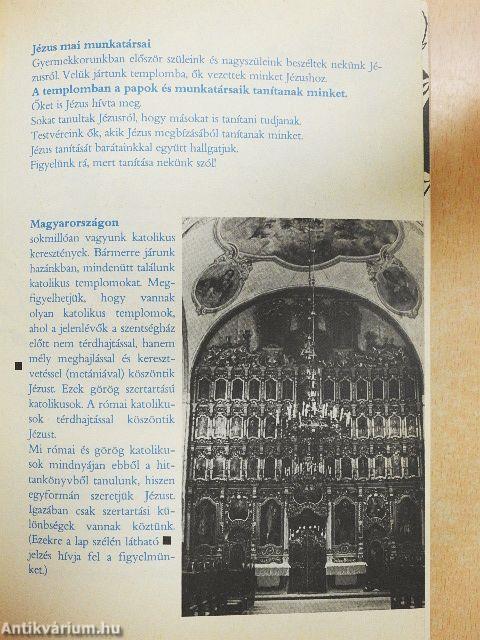 Jézus mai munkatársai
Gyermekkorunkban először szüleink és nagyszüleink beszéltek nekünk Jé-
zusról. Velük jártunk templomba, ők vezettek minket Jézushoz.
A templomban a papok és munkatársaik tanítanak minket.
Őket is Jézus hívta meg.
Sokat tanultak Jézusról, hogy másokat is tanítani tudjanak.
Testvéreink ők, akik Jézus megbízásából tanítanak minket.
Jézus tanítását barátainkkal együtt hallgatjuk.
Figyelünk rá, mert tanítása nekünk szól!
Magyarországon
sokmillióan vagyunk katolikus
keresztények. Bármerre járunk
hazánkban, mindenütt találunk
katolikus templomokat. Meg-
figyelhetjük, hogy vannak
olyan katolikus templomok,
ahol a jelenlévők a szentségház
előtt nem térdhajtással, hanem
mély meghajlással és kereszt-
vetéssel (metániával) köszöntik
Jézust. Ezek görög szertartású
katolikusok. A római katoliku-
sok térdhajtással köszöntik
Jézust.
Mi római és görög katoliku-
sok mindnyájan ebből a hit-
tankönyvből tanulunk, hiszen
egyformán szeretjük Jézust.
Igazában csak szertartási kü-
lönbségek vannak köztünk.
(Ezekre a lap szélén látható ■
jelzés hívja fel a figyelmün-
ket.)
Antikvárium.hu